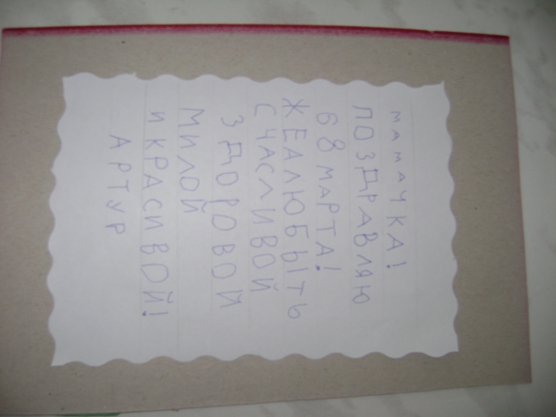 мамАЧКА!
ПОЗДРАВЛЯЮ
68 МАРТА!
ЖЕАЛЮБЫТЬ
СЧАСЛИВОЙ
ЗДОРОВОЙ
МИЛОЙ
И КРАСИВОЙ!
АРТУР